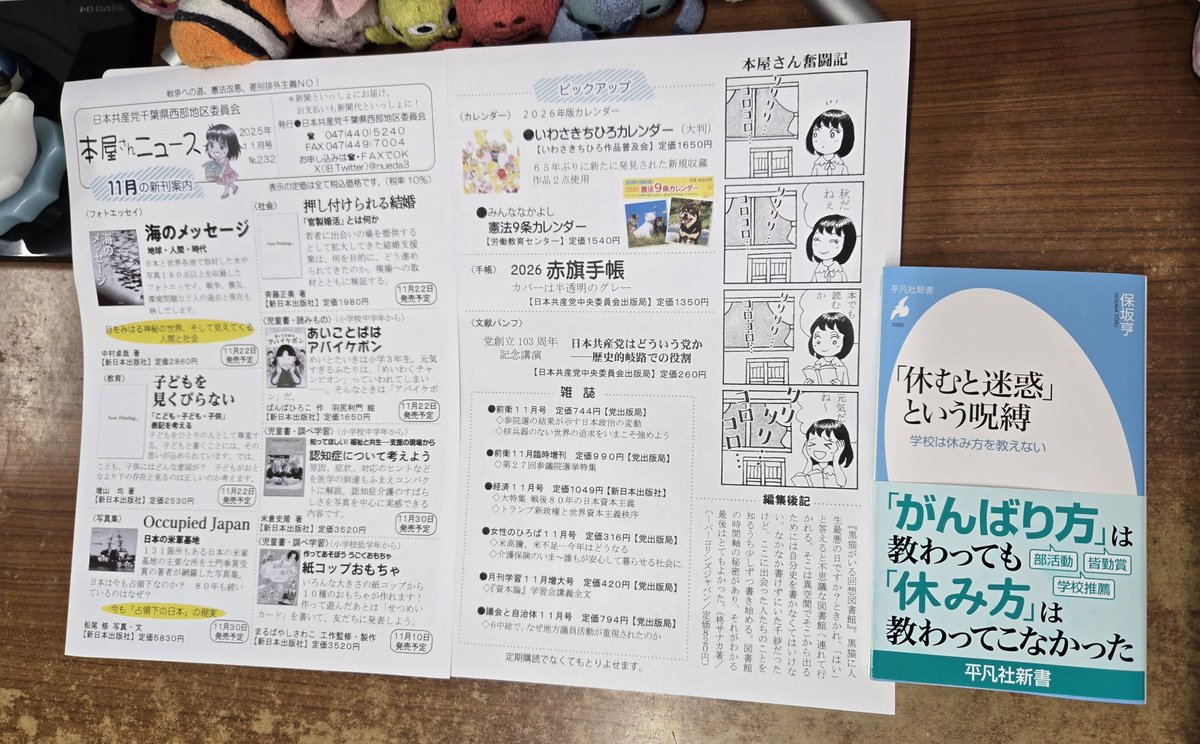 I・O DATA
戦争への道、憲法改悪、差別排外主義NO!
日本共産党千葉県西部地区委員会
本屋さんニュース
2025年
11月号
№232
*新聞といっしょにお届け、
お支払いも新聞代といっしょに!
発行●日本共産党千葉県西部地区委員会
☎ 047(440)5240
FAX 047(449)7004
お申し込みは☎・FAXでOK
X(旧Twitter)@nueda3
11月の新刊案内
表示の定価は全て税込価格です。(税率10%)
〈フォトエッセイ〉
海のメッセージ
地球・人間・時代
日本と世界各地で取材した水中
写真180点以上を収録した
フォトエッセイ。戦争、震災、
環境問題など人の過去と現在も
映しだします。
目をみはる神秘の世界、そして見えてくる
人間と社会
中村卓哉 著
【新日本出版社】定価2860円
11月22日
発売予定
〈教育〉
Now Printing...
子どもを
見くびらない
「こども・子ども・子供」
表記を考える
子どもをひとりの人として尊重す
る。子どもと書くことには、その思
いが込められています。では、
こども、子供にはどんな意図が? 子どもがおと
なより下の存在と見るのは正しいのか考えます。
増山 均 著
【新日本出版社】定価2530円
11月22日
発売予定
〈写真集〉
Occupied Japan
日本の米軍基地
131箇所もある日本の米軍
基地の主要な所を土門拳賞受
賞の著者が網羅した写真集。
日本は今も占領下なのか? 80年も続い
ているのはなぜ?
今も「占領下の日本」の現実
船尾 修 写真・文
【新日本出版社】定価5830円
11月30日
発売予定
〈社会〉
Now Printing...
押し付けられる結婚
「官製婚活」とは何か
若者に出会いの場を提供する
として拡大してきた結婚支援
策は、何を目的に、どう進め
られてきたのか。現場への取
材とともに検証する。
斉藤正美 著
【新日本出版社】定価1980円
11月22日
発売予定
〈児童書・読みもの〉(小学校中学年から)
あいことばは
アバイケボン
めいとたいきは小学3年生。元気
すぎるふたりは、「めいわくチャ
ンピオン」っていわれてしまい
…。そんなときは「アバイケボ
ン」だ。
ばんばひろこ 作 羽尻利門 絵
【新日本出版社】定価1650円
11月22日
発売予定
〈児童書・調べ学習〉(小学校中学年から)
知ってほしい! 福祉と共生─支援の現場から
認知症について考えよう
原因、症状、対応のヒントなど
を医学の到達もふまえコンパク
トに解説。認知症介護のすばら
しさを写真を中心に実感できる
内容です。
米倉史隆 著
【新日本出版社】定価3520円
11月30日
発売予定
〈児童書・調べ学習〉(小学校低学年から)
作ってあそぼう うごくおもちゃ
紙コップおもちゃ
いろんな大きさの紙コップから
10種のおもちゃが作れます!
作って遊んだあとは「せつめい
カード」を書いて、友だちに発表しよう。
まるばやしさわこ 工作監修・製作
【新日本出版社】定価3520円
11月10日
発売予定
ピックアップ
〈カレンダー〉 2026年版カレンダー
●いわさきちひろカレンダー(大判)
【いわさきちひろ作品普及会】定価1650円
65年ぶりに新たに発見された新規収蔵
作品2点使用
●みんななかよし
憲法9条カレンダー
【労働教育センター】定価1540円
2026 憲法9条カレンダー
〈手帳〉 2026 赤旗手帳
カバーは半透明のグレー
【日本共産党中央委員会出版局】定価1350円
〈文献パンフ〉
党創立103周年
記念講演
日本共産党はどういう党か
──歴史的岐路での役割
【日本共産党中央委員会出版局】定価260円
雑誌
●前衛11月号 定価744円【党出版局】
◇参院選の結果が示す日本政治の変動
◇核兵器のない世界の追求をいまこそ強めよう
●前衛11月臨時増刊 定価990円【党出版局】
◇第27回参議院選挙特集
●経済11月号 定価1049円【新日本出版社】
◇大特集 戦後80年の日本資本主義
◇トランプ新政権と世界資本主義秩序
●女性のひろば11月号 定価316円【党出版局】
◇米高騰、米不足…今年はどうなる
◇介護保険のいま~誰もが安心して暮らせる社会に
●月刊学習11月増大号 定価420円【党出版局】
◇『資本論』学習会講義全文
●議会と自治体11月号 定価794円【党出版局】
◇6中総で、なぜ地方議員活動が重視されたのか
定期購読でなくてもとりよせます。
本屋さん奮闘記
リリリリ
コロコロ
秋だ
ねぇ
リリリ
コロコロ
本でも
読むか
リリリ
コロコロ
元気だ
ね~
リリリ
コロコロ
編集後記
『黒猫がいる回想図書館』。黒猫に人
生最悪の日ですかときかれ、「はい」
と答えると不思議な図書館へ連れて行
かれる。そこは異空間でそこから出る
ためには自分史を書かなくてはいけな
い。なかなか書けずにいた千紗だった
けど、ここに出会った人たちのことを
知るうち少しずつ書き始める。図書館
の時間軸の秘密があり、それがわかる
最後はとてもよかった。(柊サナカ著/
ハーパーコリンズジャパン/定価820円)
平凡社新書
1092
保坂亨
HOSAKA TORU
「休むと迷惑」
という呪縛
学校は休み方を教えない
「がんばり方」は
教わっても
部活動
皆勤賞
学校推薦
「休み方」は
教わってこなかった
平凡社新書